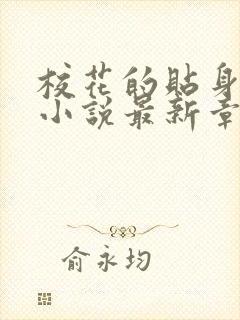 校花的貼身
小說最新章
俞永均